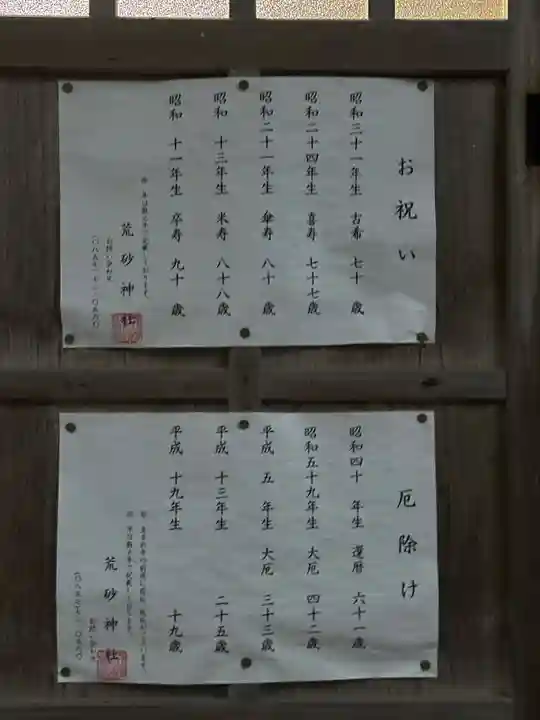 お祝い
昭和三十一年生 古希 七十 歳
昭和二十四年生 喜寿 七十七歳
昭和二十一年生 傘寿 八十 歳
昭和 十三年生 米寿 八十八歳
昭和 十一年生 卒寿 九十 歳
荒砂神社
お問い合わせ
厄除け
昭和四十 年生 還暦 六十一歳
昭和五十九年生 大厄 四十二歳
平成 五 年生 大厄 三十三歳
平成 十三年生 二十五歳
平成 十九年生 十九歳
荒砂神社
お問い合わせ